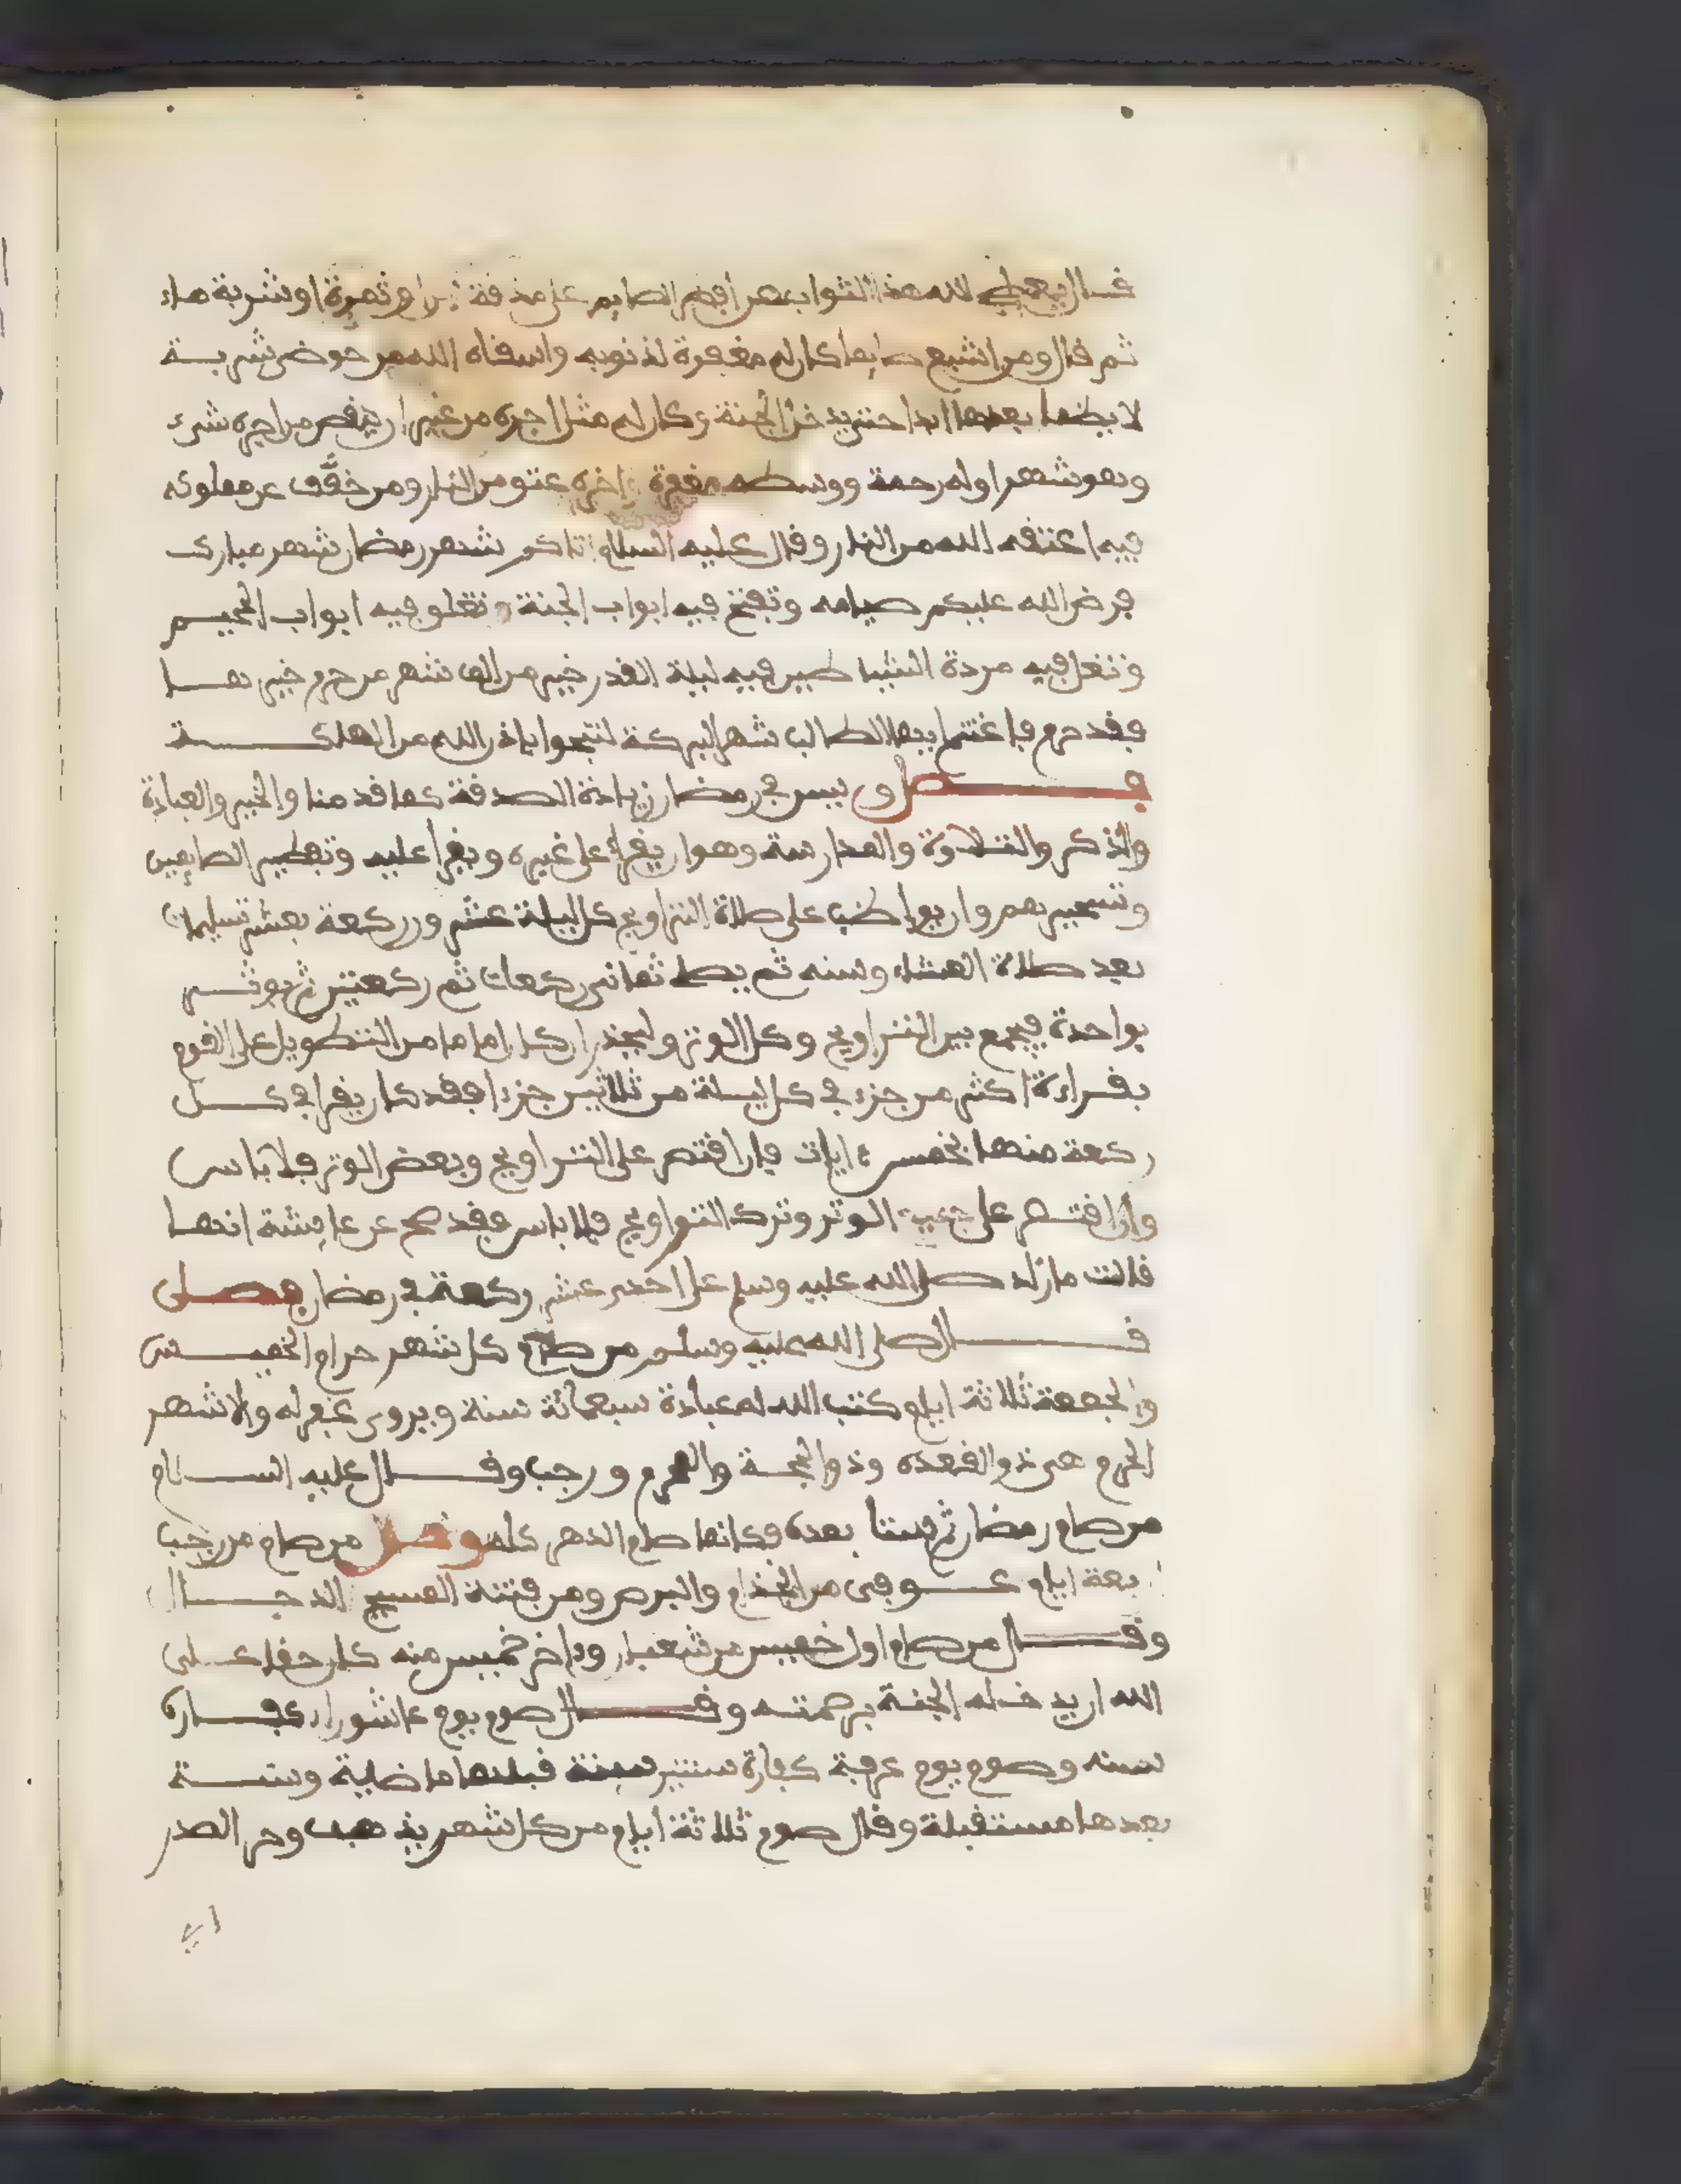 قال يعطي الله هذا الثواب من أفطر الصايم على مذقة لبن او ثمرة او شربة ماء
ثم قال ومن اشبع صايما كان له مغفرة لذنوبه واسقاه الله من حوضي شربـــة
لا يظما بعدها ابدا حتى يدخل الجنة وكان له مثل اجره من غير ان ينقص من اجره شيء
وهو شهر اوله رحمة ووسطه مغفرة وءاخره عتق من النار ومن خفَّف عن مملوكه
فيه اعتقه الله من النار وقال عليه السلام اتاكم شهر رمضان شهر مبارك
فرض الله عليكم صيامه وتفتح فيه ابواب الجنة وتغلق فيه ابواب الجحيـم
وتغل فيه مردة الشياطين فيه ليلة القدر خير من الف شهر من حرم خيرهــا
فقد حرم فاغتنم ايها الطالب شهر البركة لتنجوا باذن الله من الهلكـــة
فـــصل ويسن في رمضان زيادة الصدقة كما قدمنا والخير والعبادة
والذكر والتلاوة والمدارسة وهو ان يقرأ على غيره ويقرأ عليه وتفطير الصايمين
وتسحيرهم وان يواظب على صلاة التراويح كل ليلة عشرون ركعة بعشر تسليمات
بعد صلاة العشاء وسنه ثم يصلي ثماني ركعات ثم ركعتين ثم يوتــر
بواحدة فيجمع بين التراويح وكل الوتر وليحذر ان كان اماما من التطويل على القوم
بقراءة اكثر من جزء في كل ليلة من ثلاثين جزءا فقد كان يقرا في كـــل
ركعة منها بخمس ءايات فان اقتصر على التراويح وبعض الوتر فلا باس
وان اقتصر على جميع الوتر وترك التراويح فلا باس فقد صح عن عايشة انهـا
قالت ما زاد صلى الله عليه وسلم على احدى عشر ركعة في رمضان فصـلى
قـــال صلى الله عليه وسلم من صام كل شهر حرام الخميــس
والجمعة ثلاثة ايام كتب الله له عبادة سبعمائة سنة ويروى غفر له والاشهر
الحرم هي ذو القعده وذو الحجة والمحرم ورجب وقــال عليه الســلام
من صام رمضان ثم ستا بعده فكانما صام الدهر كله وفصل من صام من رجب
بعة ايام عـــوفى من الجذام والبرص ومن فتنة المسيح الدجــال
وقـــال من صام اول خميس من شعبان وءاخر خميس منه كان حقا علـى
الله ان يدخله الجنة برحمته وقـــال صوم يوم عاشورا كفـارة
سنه وصوم يوم عرفة كفارة سنتين سنة قبلها ماضية وسنــة
بعدها مستقبلة وقال صوم ثلاثة ايام من كل شهر يذهب وحر الصدر